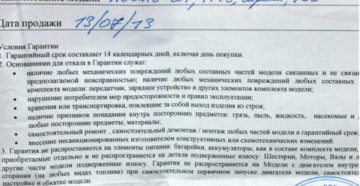 Дата продажи 13/07/13
Условия Гарантии
1. Гарантийный срок составляет 14 календарных дней, включая день покупки.
2. Основаниями для отказа в Гарантии служат:
наличие любых механических повреждений любых составных частей модели связанных и не связа
предполагаемой неисправностью; наличие любых механических повреждений любых составных
комплекта модели: передатчик, зарядное устройство и других элементов комплекта модели;
нарушение потребителем мер предосторожности и правил эксплуатации.
хранения или транспортировка, повлекшие за собой выход изделия из строя;
наличие признаков попадания внутрь посторонних предметов: грязь, пыль, жидкость, насекомые и
любые посторонние предметы, материалы;
самостоятельный ремонт, самостоятельный демонтаж / монтаж любых частей модели в гарантийный срок;
внесение несанкционированных изготовителем конструктивных или схемотехнических изменений.
3. Гарантия не распространяется на элементы питания: батарейки, аккумуляторы, как в составе комплекта модели,
приобретаемые отдельно и не распространяется на детали подверженные износу: Шестерни, Моторы, Валы и
другие части модели подверженные износу. Гарантия не распространяется на Модели с двигателем внутре
сгорания (на любых видах топлива) при самостоятельном первичном запуске модели двигателя, самостоя
настройке и обкатке модели.